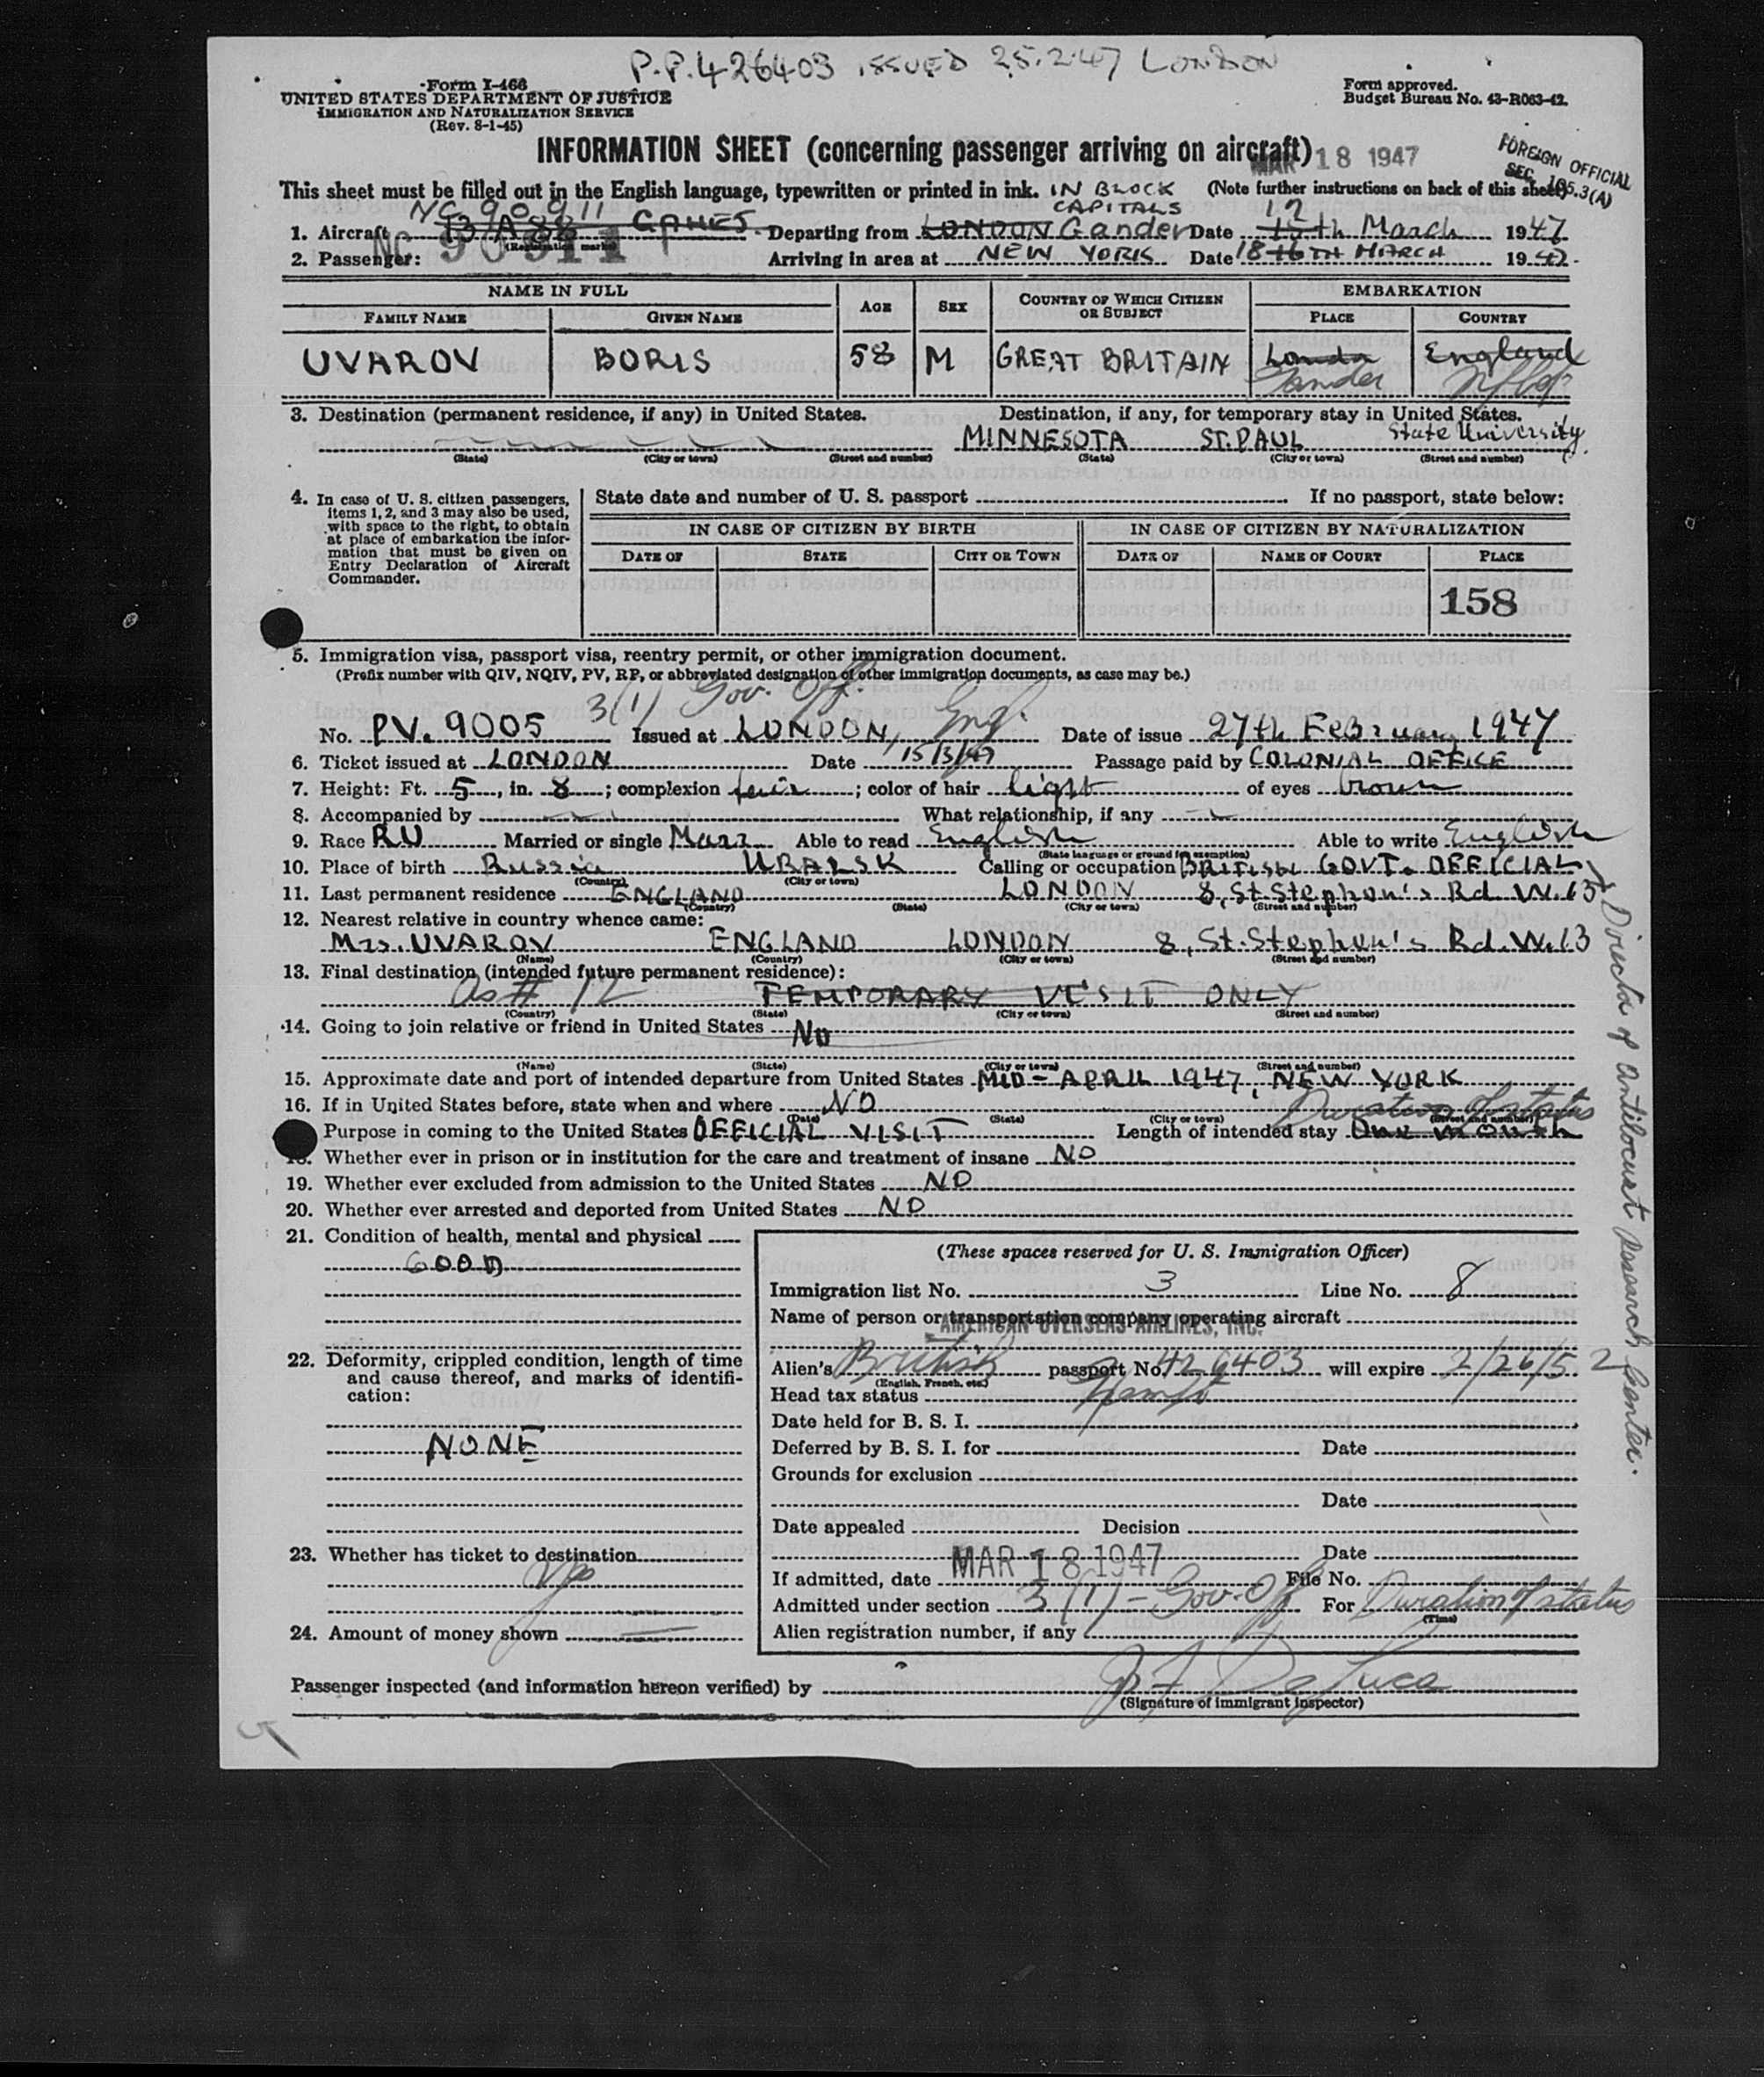 P.P. 426403 ISSUED 25.2.47 LONDON
Form I-466
UNITED STATES DEPARTMENT OF JUSTICE
IMMIGRATION AND NATURALIZATION SERVICE
(Rev. 8-1-45)
Form approved.
Budget Bureau No. 43-R063-42.
INFORMATION SHEET (concerning passenger arriving on aircraft)
MAR 18 1947
FOREIGN OFFICIAL
SEC. 105.3(A)
This sheet must be filled out in the English language, typewritten or printed in ink. IN BLOCK CAPITALS (Note further instructions on back of this sheet)
NC 90911
1. Aircraft (Registration marks) Departing from LONDON Gander Date 15th 17 March 1947
NC 90911
2. Passenger: Arriving in area at NEW YORK Date 18 16TH MARCH 1947
NAME IN FULL AGE SEX COUNTRY OF WHICH CITIZEN OR SUBJECT EMBARKATION
FAMILY NAME GIVEN NAME PLACE COUNTRY
UVAROV BORIS 58 M GREAT BRITAIN London England
Gander Nfld
3. Destination (permanent residence, if any) in United States. Destination, if any, for temporary stay in United States.
MINNESOTA ST. PAUL State University
(State) (City or town) (Street and number) (State) (City or town) (Street and number)
4. In case of U. S. citizen passengers, items 1, 2, and 3 may also be used, with space to the right, to obtain at place of embarkation the information that must be given on Entry Declaration of Aircraft Commander.
State date and number of U. S. passport If no passport, state below:
IN CASE OF CITIZEN BY BIRTH IN CASE OF CITIZEN BY NATURALIZATION
DATE OF STATE CITY OR TOWN DATE OF NAME OF COURT PLACE
158
5. Immigration visa, passport visa, reentry permit, or other immigration document.
(Prefix number with QIV, NQIV, PV, RP, or abbreviated designation of other immigration documents, as case may be.)
3(1) Gov. Off.
No. PV. 9005 Issued at LONDON, Eng. Date of issue 27th February 1947
6. Ticket issued at LONDON Date 15/3/47 Passage paid by COLONIAL OFFICE
7. Height: Ft. 5, in. 8; complexion fair; color of hair light of eyes brown
8. Accompanied by What relationship, if any
9. Race RU Married or single Marr Able to read English Able to write English
(State language or ground for exemption)
10. Place of birth Russia URALSK Calling or occupation BRITISH GOVT. OFFICIAL
(Country) (City or town)
11. Last permanent residence ENGLAND LONDON 8, St. Stephen's Rd W.13
(Country) (State) (City or town) (Street and number)
12. Nearest relative in country whence came:
Mrs. UVAROV ENGLAND LONDON 8, St. Stephen's Rd. W.13
(Name) (Country) (City or town) (Street and number)
13. Final destination (intended future permanent residence):
As # 12 TEMPORARY VISIT ONLY
(Country) (State) (City or town) (Street and number)
14. Going to join relative or friend in United States No
(Name) (State) (City or town) (Street and number)
15. Approximate date and port of intended departure from United States MID-APRIL 1947, NEW YORK
16. If in United States before, state when and where NO
(Date) (State) (City or town) (Street and number)
Duration of status
Purpose in coming to the United States OFFICIAL VISIT Length of intended stay One month
18. Whether ever in prison or in institution for the care and treatment of insane NO
19. Whether ever excluded from admission to the United States NO
20. Whether ever arrested and deported from United States NO
21. Condition of health, mental and physical
GOOD
22. Deformity, crippled condition, length of time and cause thereof, and marks of identification:
NONE
23. Whether has ticket to destination
yes
24. Amount of money shown
(These spaces reserved for U. S. Immigration Officer)
Immigration list No. 3 Line No. 8
Name of person or transportation company operating aircraft
AMERICAN OVERSEAS AIRLINES, INC.
Alien's British passport No. 426403 will expire 2/26/52
(English, French, etc.)
Head tax status Exempt
Date held for B. S. I.
Deferred by B. S. I. for Date
Grounds for exclusion
Date
Date appealed Decision
Date
If admitted, date MAR 18 1947 File No.
Admitted under section 3(1) - Gov. Off For Duration of status
(Time)
Alien registration number, if any
Passenger inspected (and information hereon verified) by
(Signature of immigrant inspector)
Director of Antilocust Research Center.